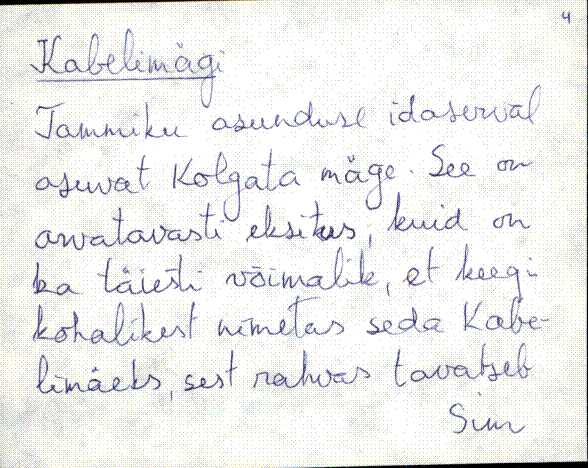 4
Kabelimägi
Tammiku asunduse idaserval
asuvat Kolgata mäge. See on
arvatavasti eksitus, kuid on
ka täiesti võimalik, et keegi
kohalikest nimetas seda Kabe-
limäeks, sest rahvas tavatseb